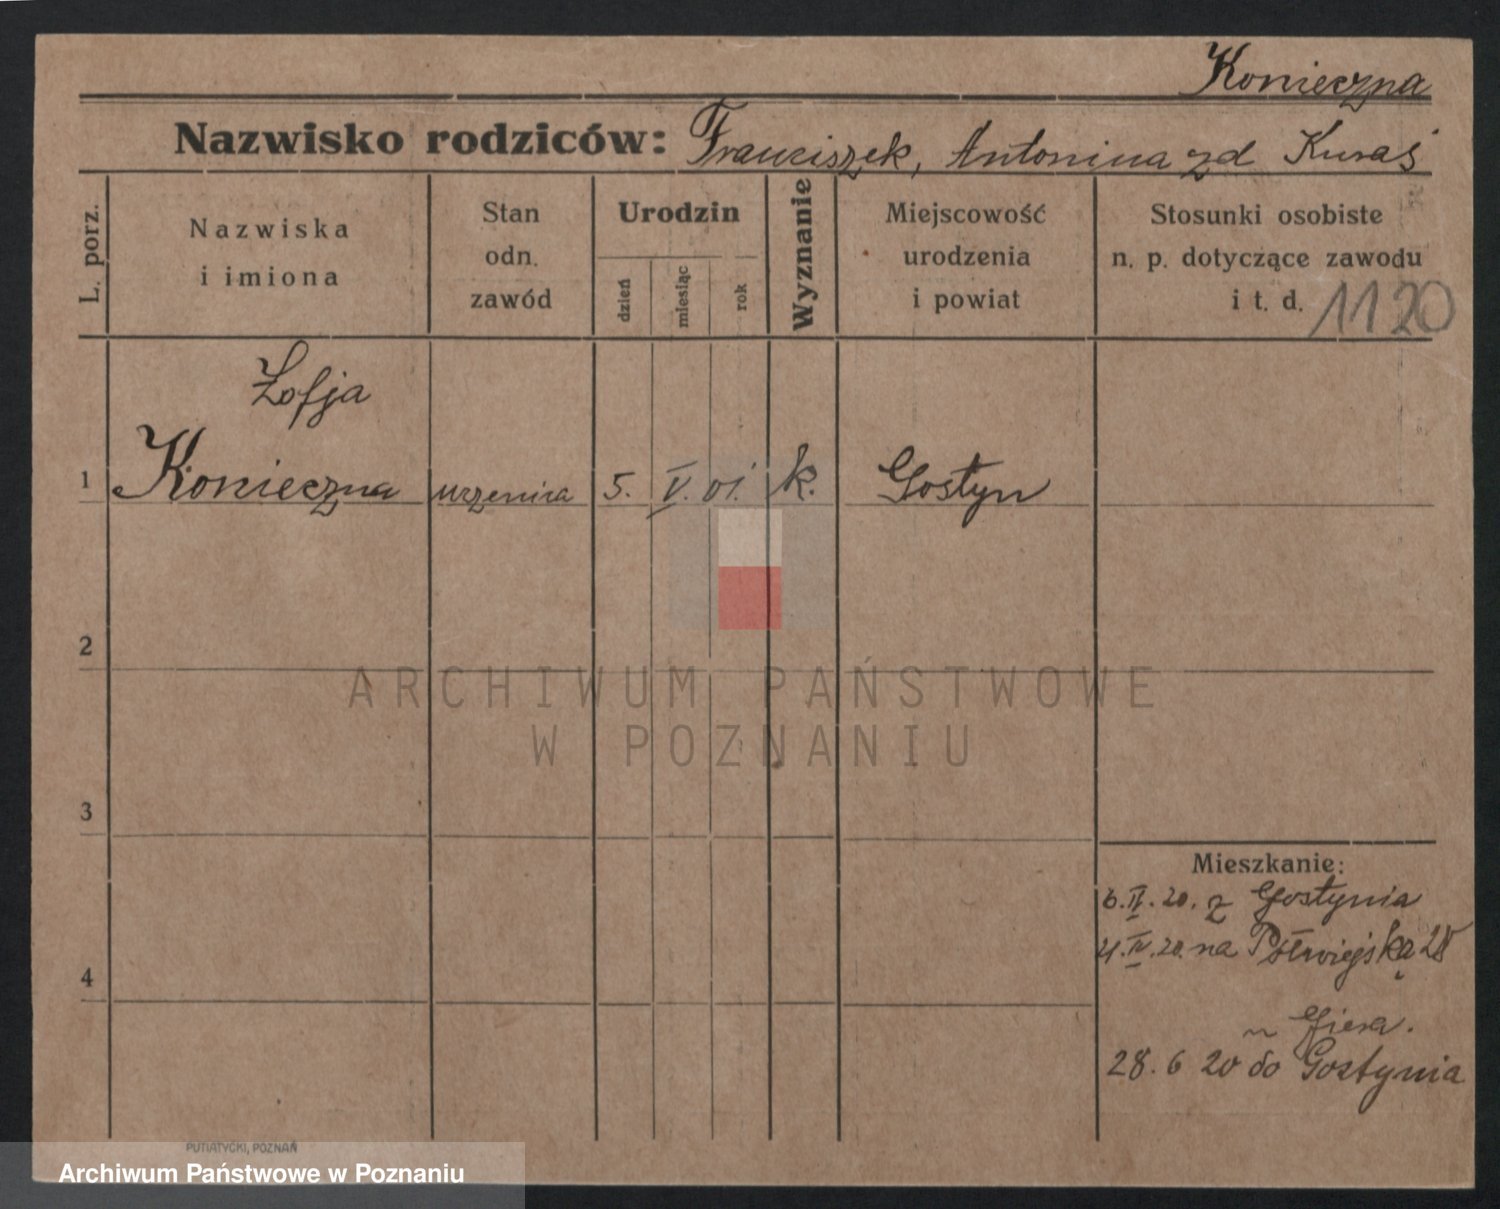 Konieczna
Nazwisko rodziców: Franciszek, Antonina zd Kuraś
L. porz.
Nazwiska
i imiona
Stan
odn.
zawód
Urodzin
dzień
miesiąc
rok
Wyznanie
Miejscowość
urodzenia
i powiat
Stosunki osobiste
n. p. dotyczące zawodu
i t. d. 1120
Zofja
1 Konieczna uczenica 5. V. 01. k. Gostyn
2
ARCHIWUM PAŃSTWOWE
W POZNANIU
3
Mieszkanie:
6.IV.20. z Gostynia
4.IV.20. na Półwiejską 28
4
28. 6 20 do Gostynia
PUTIATYCKI, POZNAŃ
Archiwum Państwowe w Poznaniu